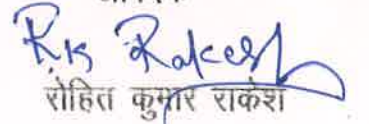 RK Rakesh
रोहित कुमार राकेश